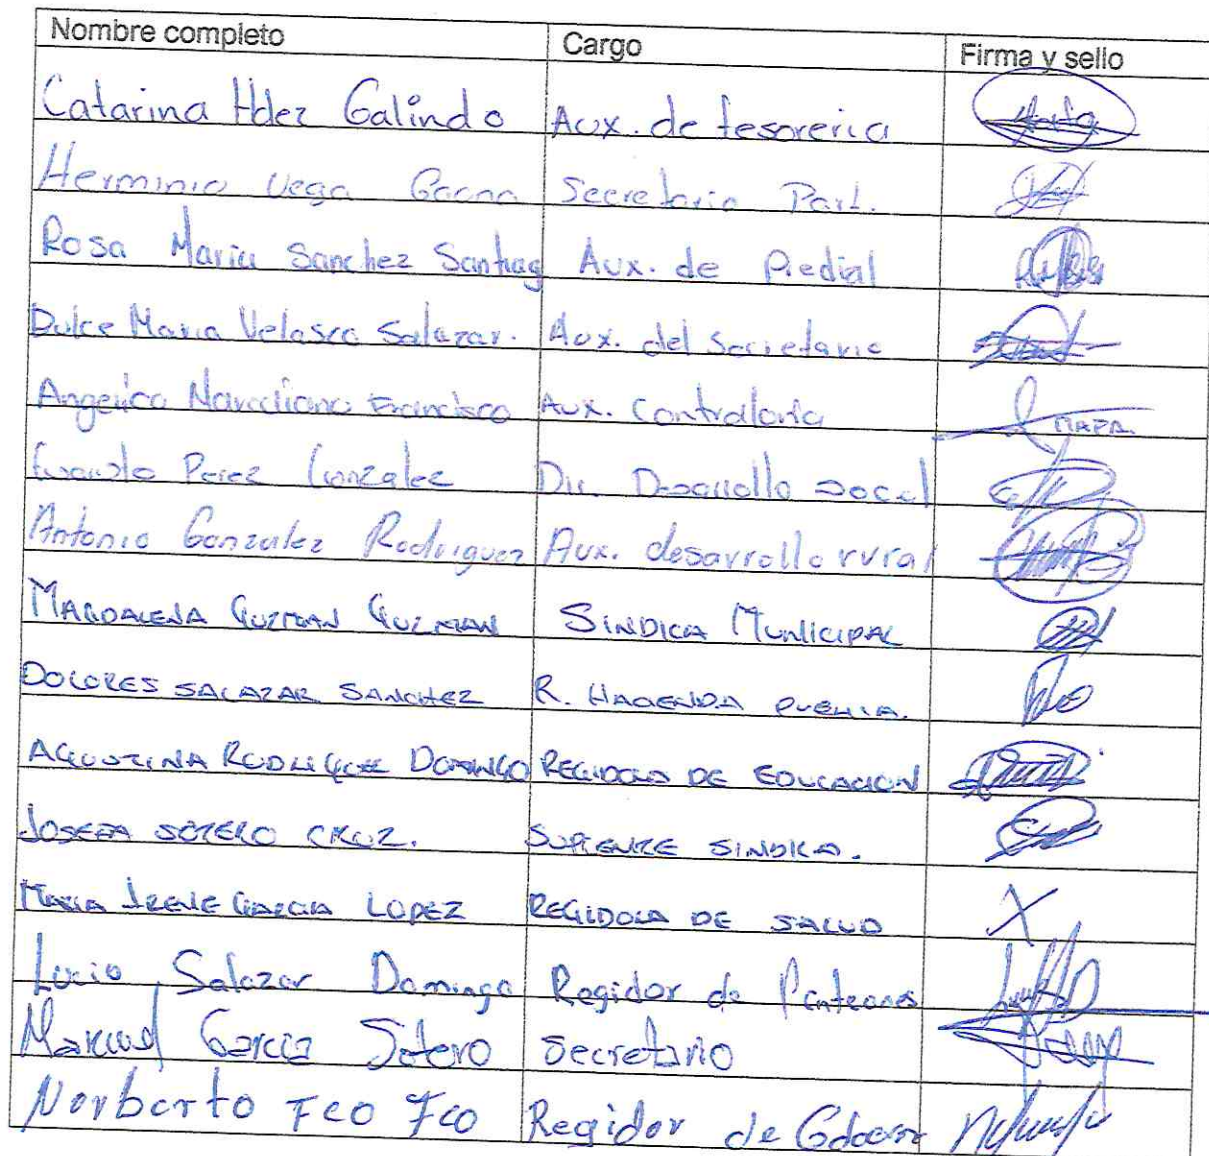 Nombre completo Cargo Firma y sello
Catarina Hdez Galindo Aux. de tesoreria
Herminio Vega Gaona Secretario Part.
Rosa Maria Sanchez Santiag Aux. de Predial
Dulce Maria Velasco Salazar. Aux. del Secretario
Angelica Francisco Aux. Contraloria
Perez Gonzalez Dir. Desarrollo Social
Antonio Gonzalez Rodriguez Aux. desarrollo rural
MAGDALENA GUZMAN GUZMAN SINDICA MUNICIPAL
DOLORES SALAZAR SANCHEZ R. HACIENDA
AGUSTINA RODRIGUEZ DOMINGO REGIDORA DE EDUCACION
JOSEFA SOTERO CRUZ. SUPLENTE SINDICA.
MARIA IRENE GARCIA LOPEZ REGIDORA DE SALUD X
Lucio Salazar Domingo Regidor de Panteones
Garcia Sotero Secretario
Norberto Fco Fco Regidor de